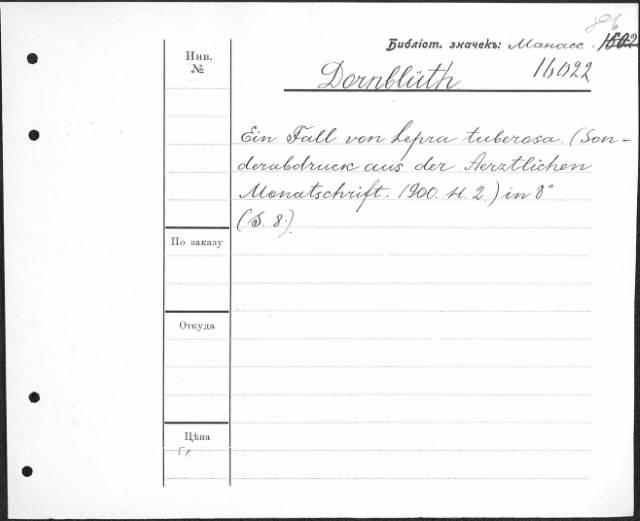 Библіот. значекъ: Манасс. 1502
11022
Инв.
№
Dornblüth
Ein Fall von Lepra tuberosa. (Son-
derabdruck aus der Aerztlichen
Monatschrift. 1900. H. 2.) in 8°
(S. 8.)
По заказу
Откуда
Цѣна